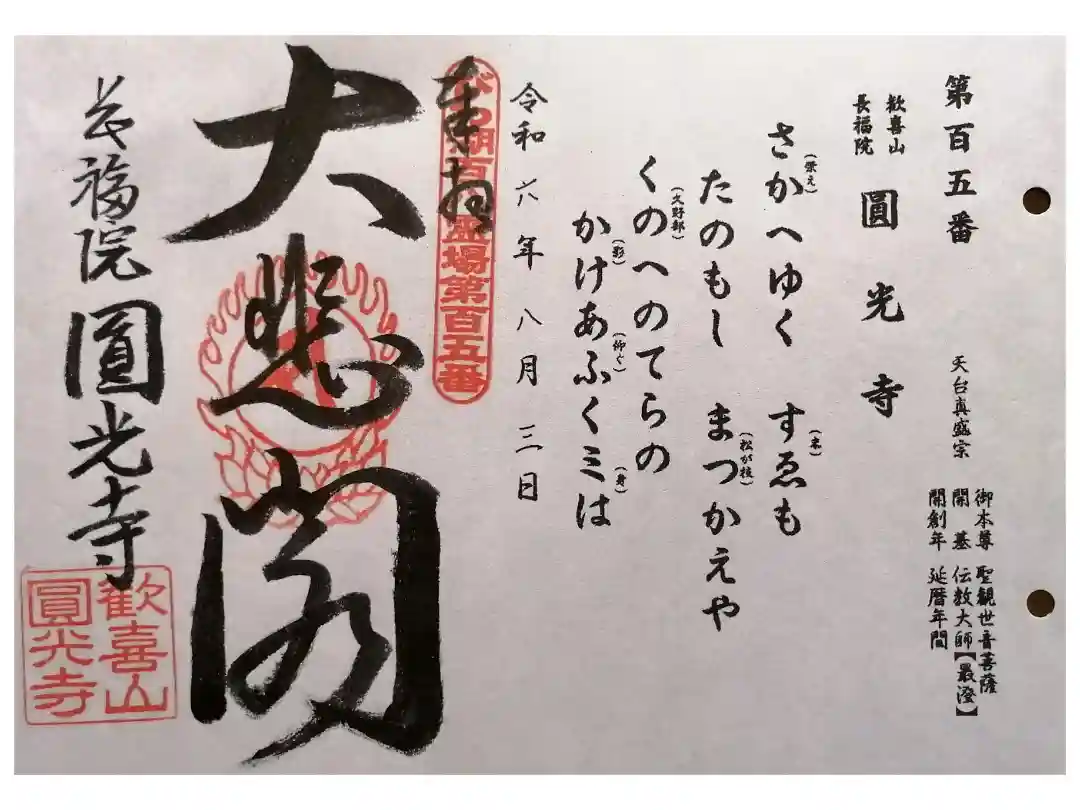 第百五番
歓喜山
長福院
圓光寺
天台真盛宗
御本尊 聖観世音菩薩
開基 伝教大師【最澄】
開創年 延暦年間
さかへゆく すゑも
(栄え)
(末)
たのもし まつかえや
(松が枝)
くのへのてらの
(久野部)
かけあふくミは
(影)
(仰ぐ)
(身)
令和六年八月三日
奉拝
びわ湖百八霊場第百五番
大悲閣
長福院圓光寺
歓喜山
圓光寺